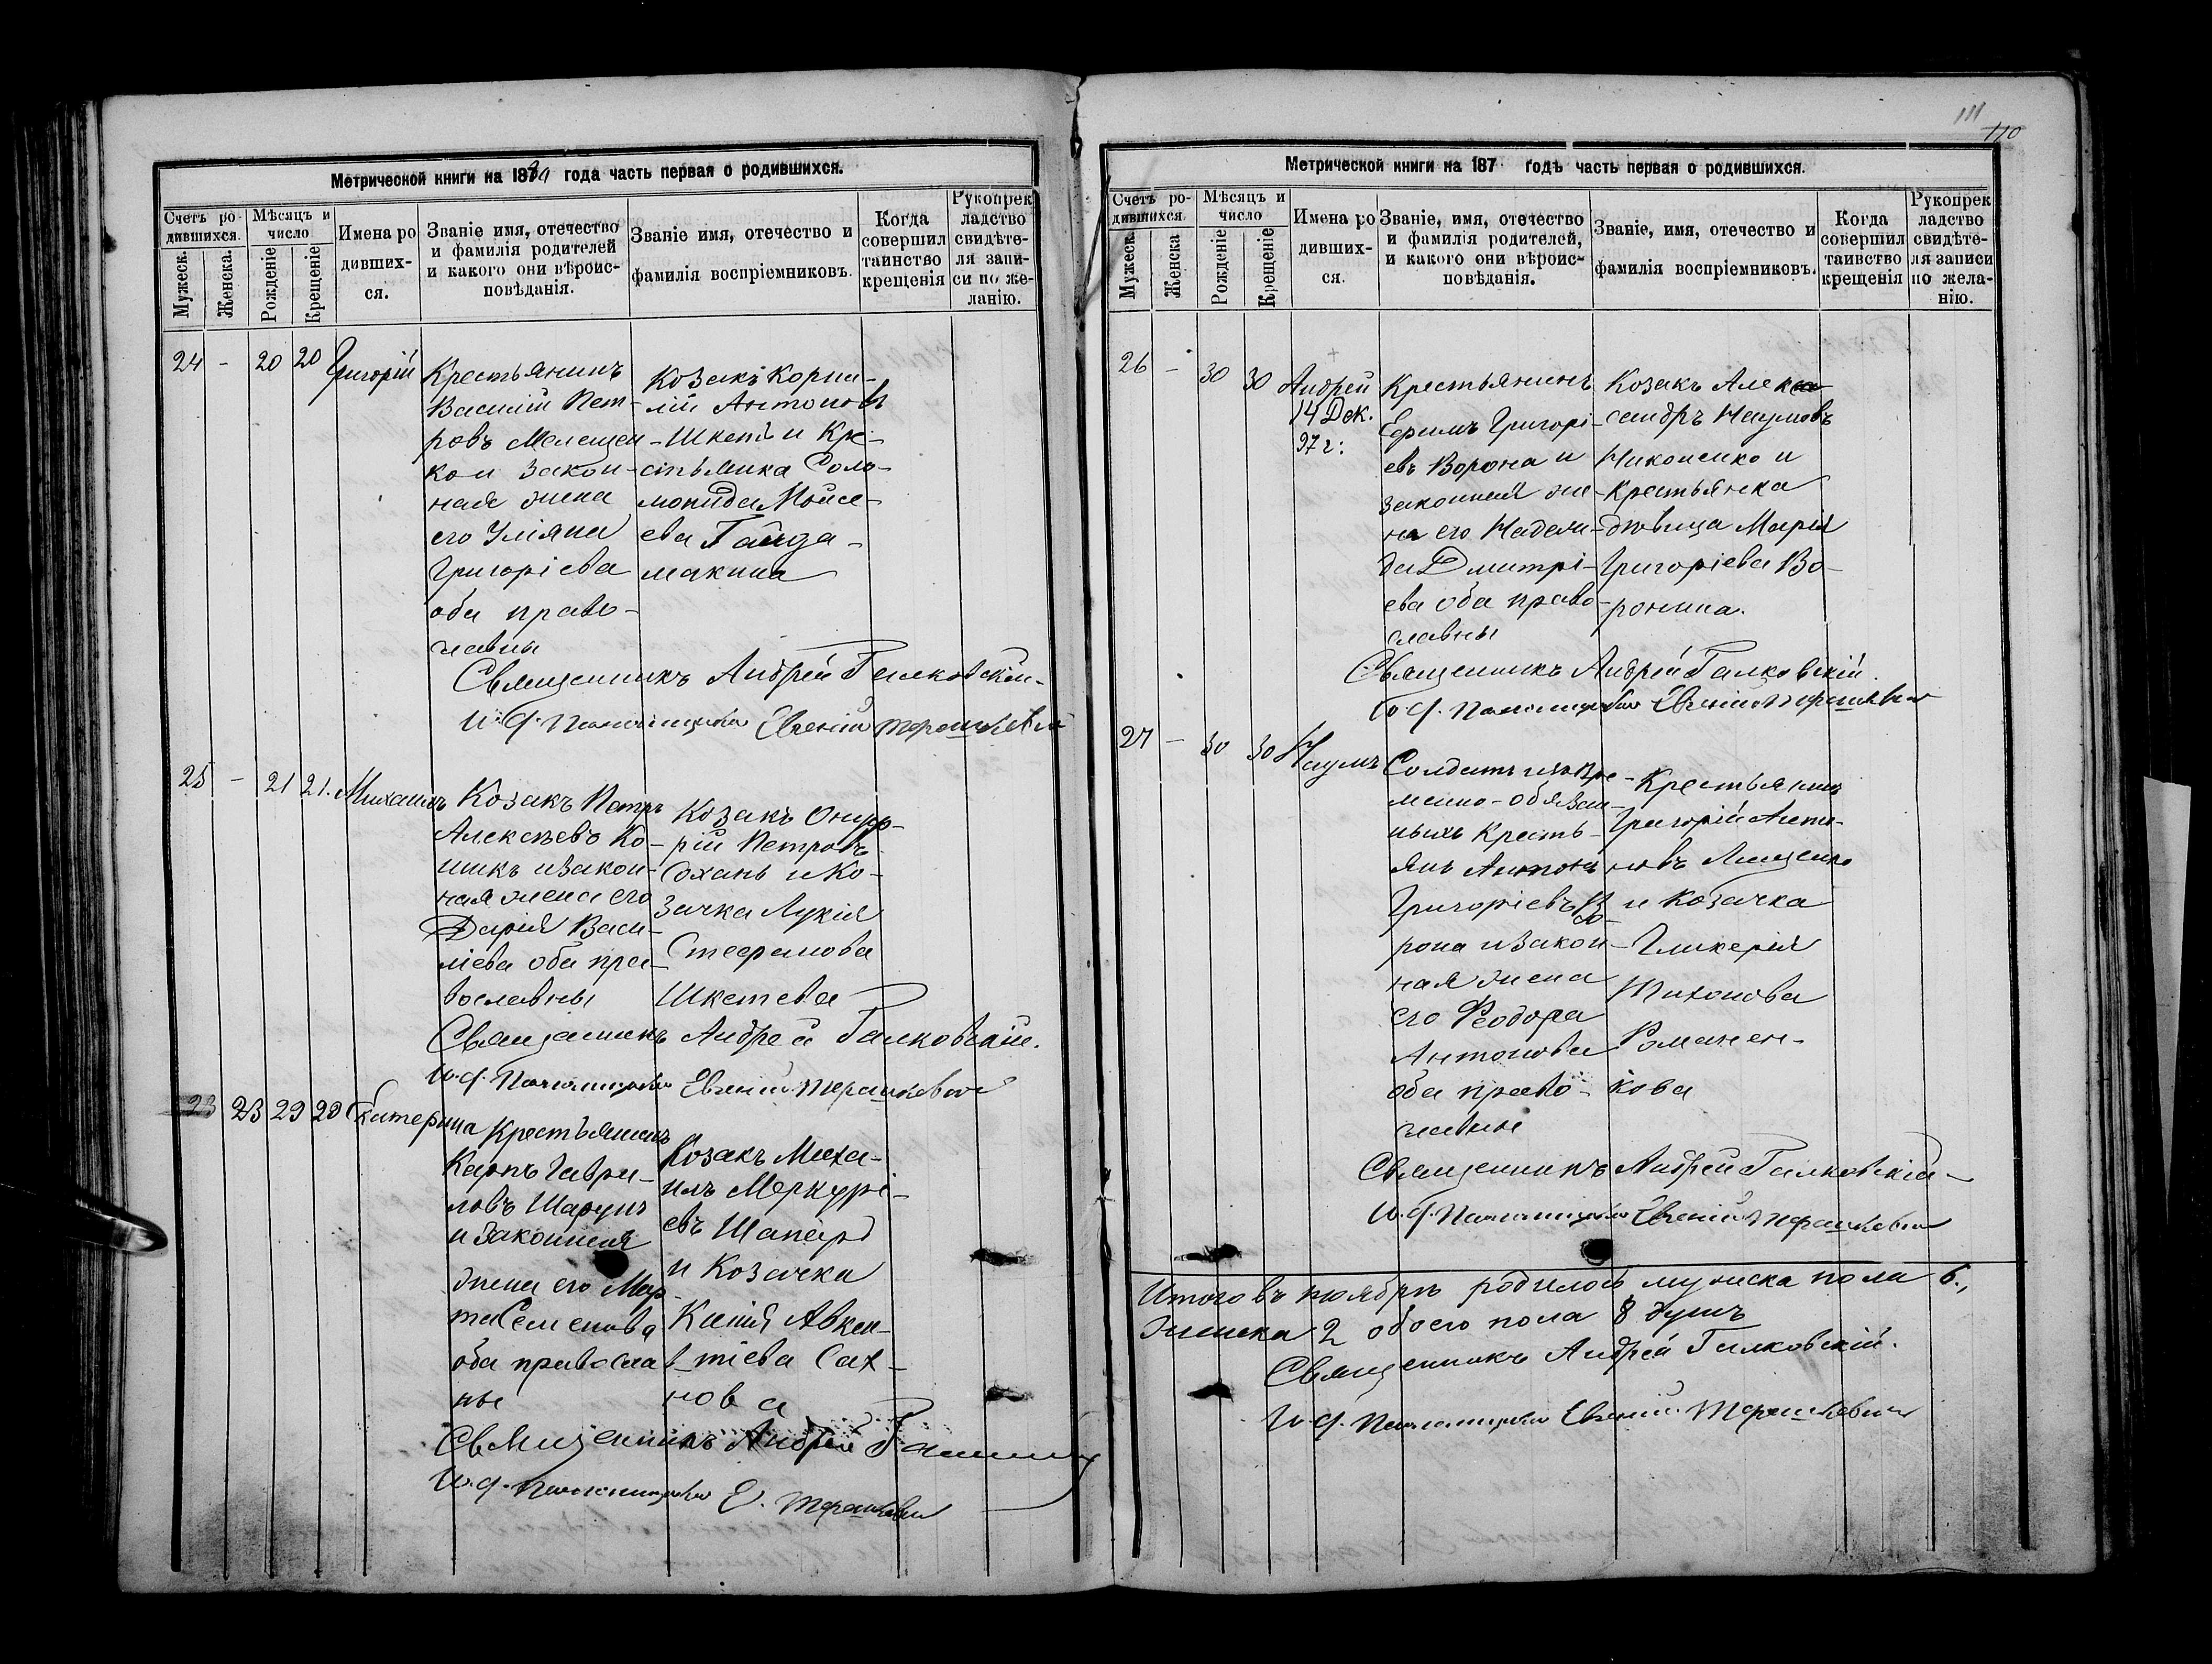 Метрической книги на 187 года часть первая о родившихся.
Счетъ родившихся.
Мужеск.
Женска.
Мѣсяцъ и число
Рожденіе
Крещеніе
Имена родившихся.
Званіе имя, отечество и фамилія родителей и какого они вѣроисповѣданія.
Званіе имя, отечество и фамилія воспріемниковъ.
Когда совершил таинство крещенія
Рукоприкладство свидѣтеля записи по желанію.
24 - 20 20 Григорій
Крестьянинъ
Василій Пет-
ровъ Мелещен-
ко и закон-
ная жена
его Уліяна
Григоріева
оба право-
славны
Козакъ Корни-
лій Антоновъ
Шкетъ и Кре-
стьянка Соло-
монида Мойсе-
ева Гайда-
макина
Священникъ Андрей Галковскій.
И. д. Псаломщика Евгеній
25 - 21 21. Михаилъ
Козакъ Петръ
Алексѣевъ Ко-
шикъ и закон-
ная жена его
Дарія Васи-
ліева оба пра-
вославны
Козакъ Онуф-
рій Петровъ
Сохань и Ко-
зачка Лукія
Стефанова
Шкетева
Священникъ Андрей Галковскій.
И. д. Псаломщика Евгеній
23 29 29 Екатерина
Крестьянинъ
Карпъ Гаври-
ловъ Шарунъ
и законная
жена его Мар-
та Семенова
оба правослa в-
ны
Козакъ Миха-
илъ Меркурі-
евъ
и Козачка
Ксенія Авксен-
тіева Сах-
нова
Священникъ Андрей
И. д. Псаломщика Е.
111
110
Метрической книги на 187 годъ часть первая о родившихся.
Счетъ родившихся.
Мужеск.
Женска
Мѣсяцъ и число
Рожденіе
Крещеніе
Имена родившихся.
Званіе, имя, отечество и фамилія родителей, и какого они вѣроисповѣданія.
Званіе, имя, отечество и фамилія воспріемниковъ.
Когда совершил таивство крещенія
Рукоприкладство свидѣтеля записи по желанію.
26 - 30 30 Андрей
14 Дек.
97 г:
Крестьянинъ
Ефимъ Григорі-
евъ Ворона и
законная же-
на его Надеж-
да Дмитрі-
ева оба право-
славны
Козакъ Алек-
сандръ Наумовъ
Никоненко и
Крестьянка
дѣвица Марія
Григоріева Во-
ронина.
Священникъ Андрей Галковскій.
И. д. Псаломщика Евгеній
27 - 30 30 Наумъ
Солдатъ изъ вре-
менно-обязан-
ныхъ Кресть-
янъ Антонъ
Григоріевъ Во-
рона и закон-
ная жена
его Феодора
Антонова
оба право-
славны
Крестьянинъ
Григорій Анто-
новъ Лищенко
и Козачка
Гликерія
Тихонова
Романен-
кова
Священникъ Андрей Галковскій
И. д. Псаломщика Евгеній
Итого въ ноябрѣ родилось мужска пола 6.,
женска 2 обоего пола 8 душъ
Священникъ Андрей Галковскій.
И. д. Псаломщика Евгеній